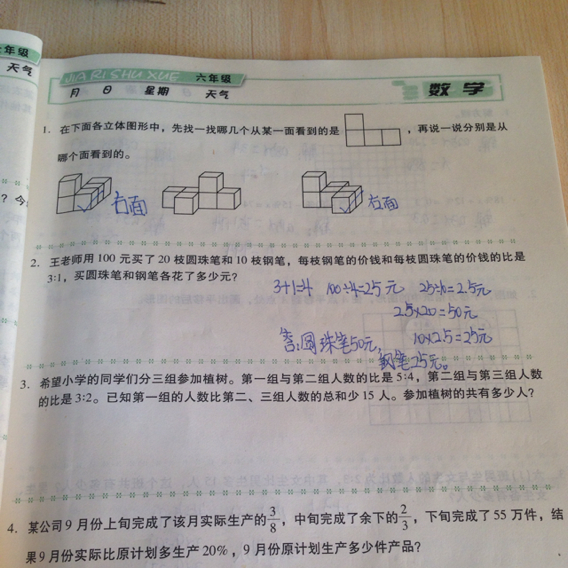 年级
天气
JIA RI SHU XUE 六年级
月 日 星期 天气
数学
1. 在下面各立体图形中，先找一找哪几个从某一面看到的是 ，再说一说分别是从
哪个面看到的。
右面 右面
？今
2. 王老师用 100 元买了 20 枝圆珠笔和 10 枝钢笔，每枝钢笔的价钱和每枝圆珠笔的价钱的比是
3:1，买圆珠笔和钢笔各花了多少元？
3+1=4 100÷4=25元 25÷10=2.5元
2.5×20=50元
答：圆珠笔50元， 10×2.5=25元
钢笔25元。
3. 希望小学的同学们分三组参加植树。第一组与第二组人数的比是 5:4，第二组与第三组人数
的比是 3:2。已知第一组的人数比第二、三组人数的总和少 15 人。参加植树的共有多少人？
4. 某公司 9 月份上旬完成了该月实际生产的3/8，中旬完成了余下的2/3，下旬完成了 55 万件，结
果 9 月份实际比原计划多生产 20%，9 月份原计划生产多少件产品？